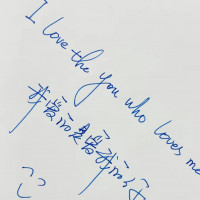 I love the you who loves me
我爱的是爱我的你